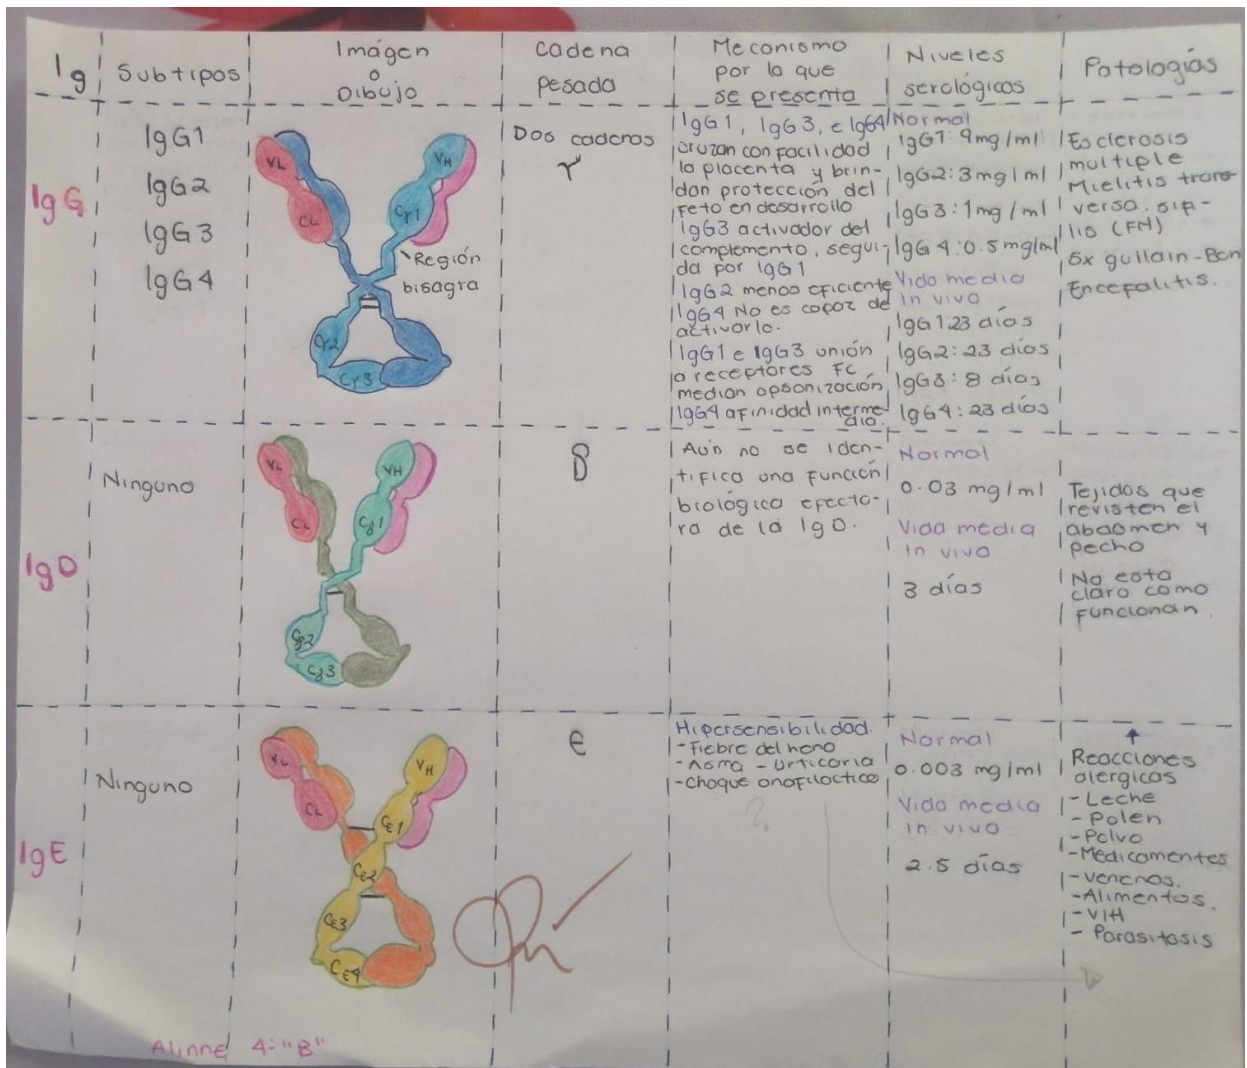 Ig
Subtipos
Imágen
o
Dibujo
Cadena
pesada
Mecanismo
por lo que
se presenta
Niveles
serológicos
Patologías
IgG
IgG1
IgG2
IgG3
IgG4
VL
CL
VH
Cγ1
Región
bisagra
Cγ2
Cγ3
Dos cadenas
γ
IgG1, IgG3, e IgG4
cruzan con facilidad
la placenta y brin-
dan protección del
feto en desarrollo
IgG3 activador del
complemento, segui-
da por IgG1
IgG2 menos eficiente
IgG4 No es capaz de
activarlo.
IgG1 e IgG3 unión
a receptores FC
median opsonización
IgG4 afinidad interme
dia.
Normal
IgG1: 9mg/ml
IgG2: 3mg/ml
IgG3: 1mg/ml
IgG4: 0.5mg/ml
Vida media
in vivo
IgG1 23 días
IgG2: 23 días
IgG3: 8 días
IgG4: 23 días
Esclerosis
multiple
Mielitis trans-
versa. sifi-
lis (FN)
Sx gullain-Barr
Encefalitis.
IgD
Ninguno
VL
CL
VH
Cδ1
Cδ2
Cδ3
δ
Aún no se iden-
tifica una función
biológica efecto-
ra de la IgD.
Normal
0.03 mg/ml
Vida media
in vivo
3 días
Tejidos que
revisten el
abdomen y
pecho
No esta
claro como
funcionan.
IgE
Ninguno
VL
CL
VH
Cε1
Cε2
Cε3
Cε4
e
Hipersensibilidad
- Fiebre del heno
- Asma - Urticaria
- Choque anafilactico
?
Normal
0.003 mg/ml
Vida media
in vivo
2.5 días
↑
Reacciones
alergicas
- Leche
- Polen
- Polvo
- Medicamentes
- Venenos.
- Alimentos.
- VIH
- Parasitosis
Alinne 4:"B"